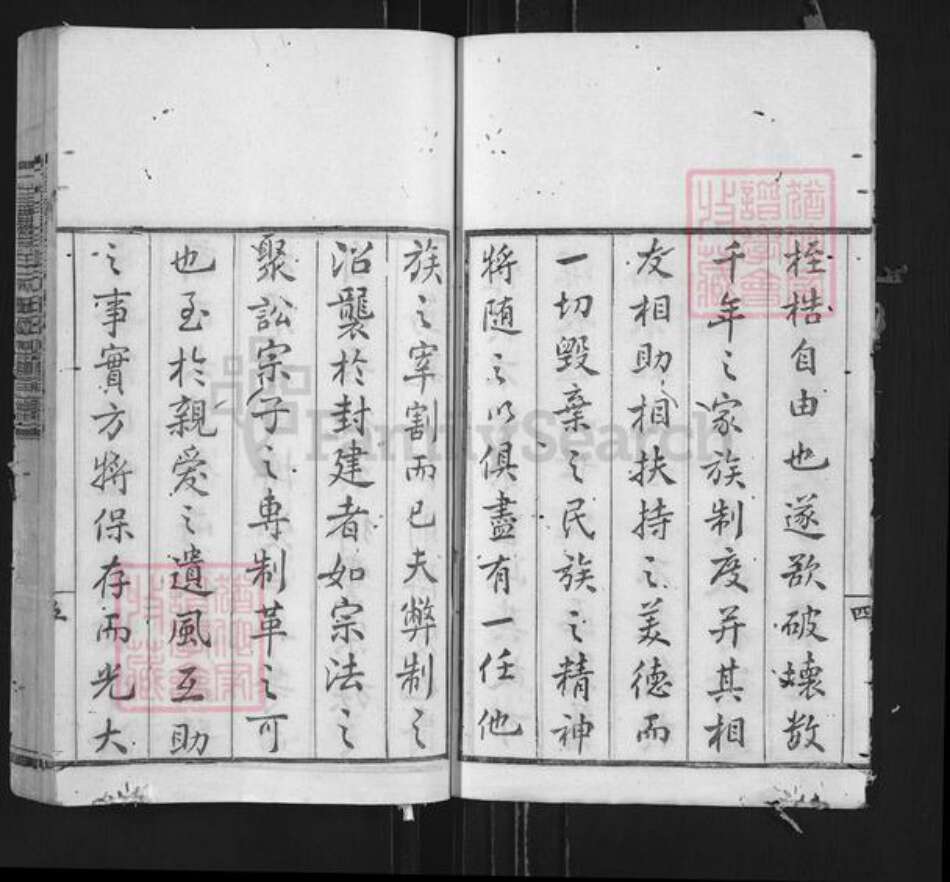 桎梏自由也遂欲破壞數
千年之家族制度并其相
友相助相扶持之美德而
一切毀棄之民族之精神
將隨之以俱盡有一任他
族之宰割而已夫弊制之
沿襲於封建者如宗法之
聚訟宗子之專制革之可
也至於親愛之遺風互助
之事實方將保存而光大
四
五
FamilySearch